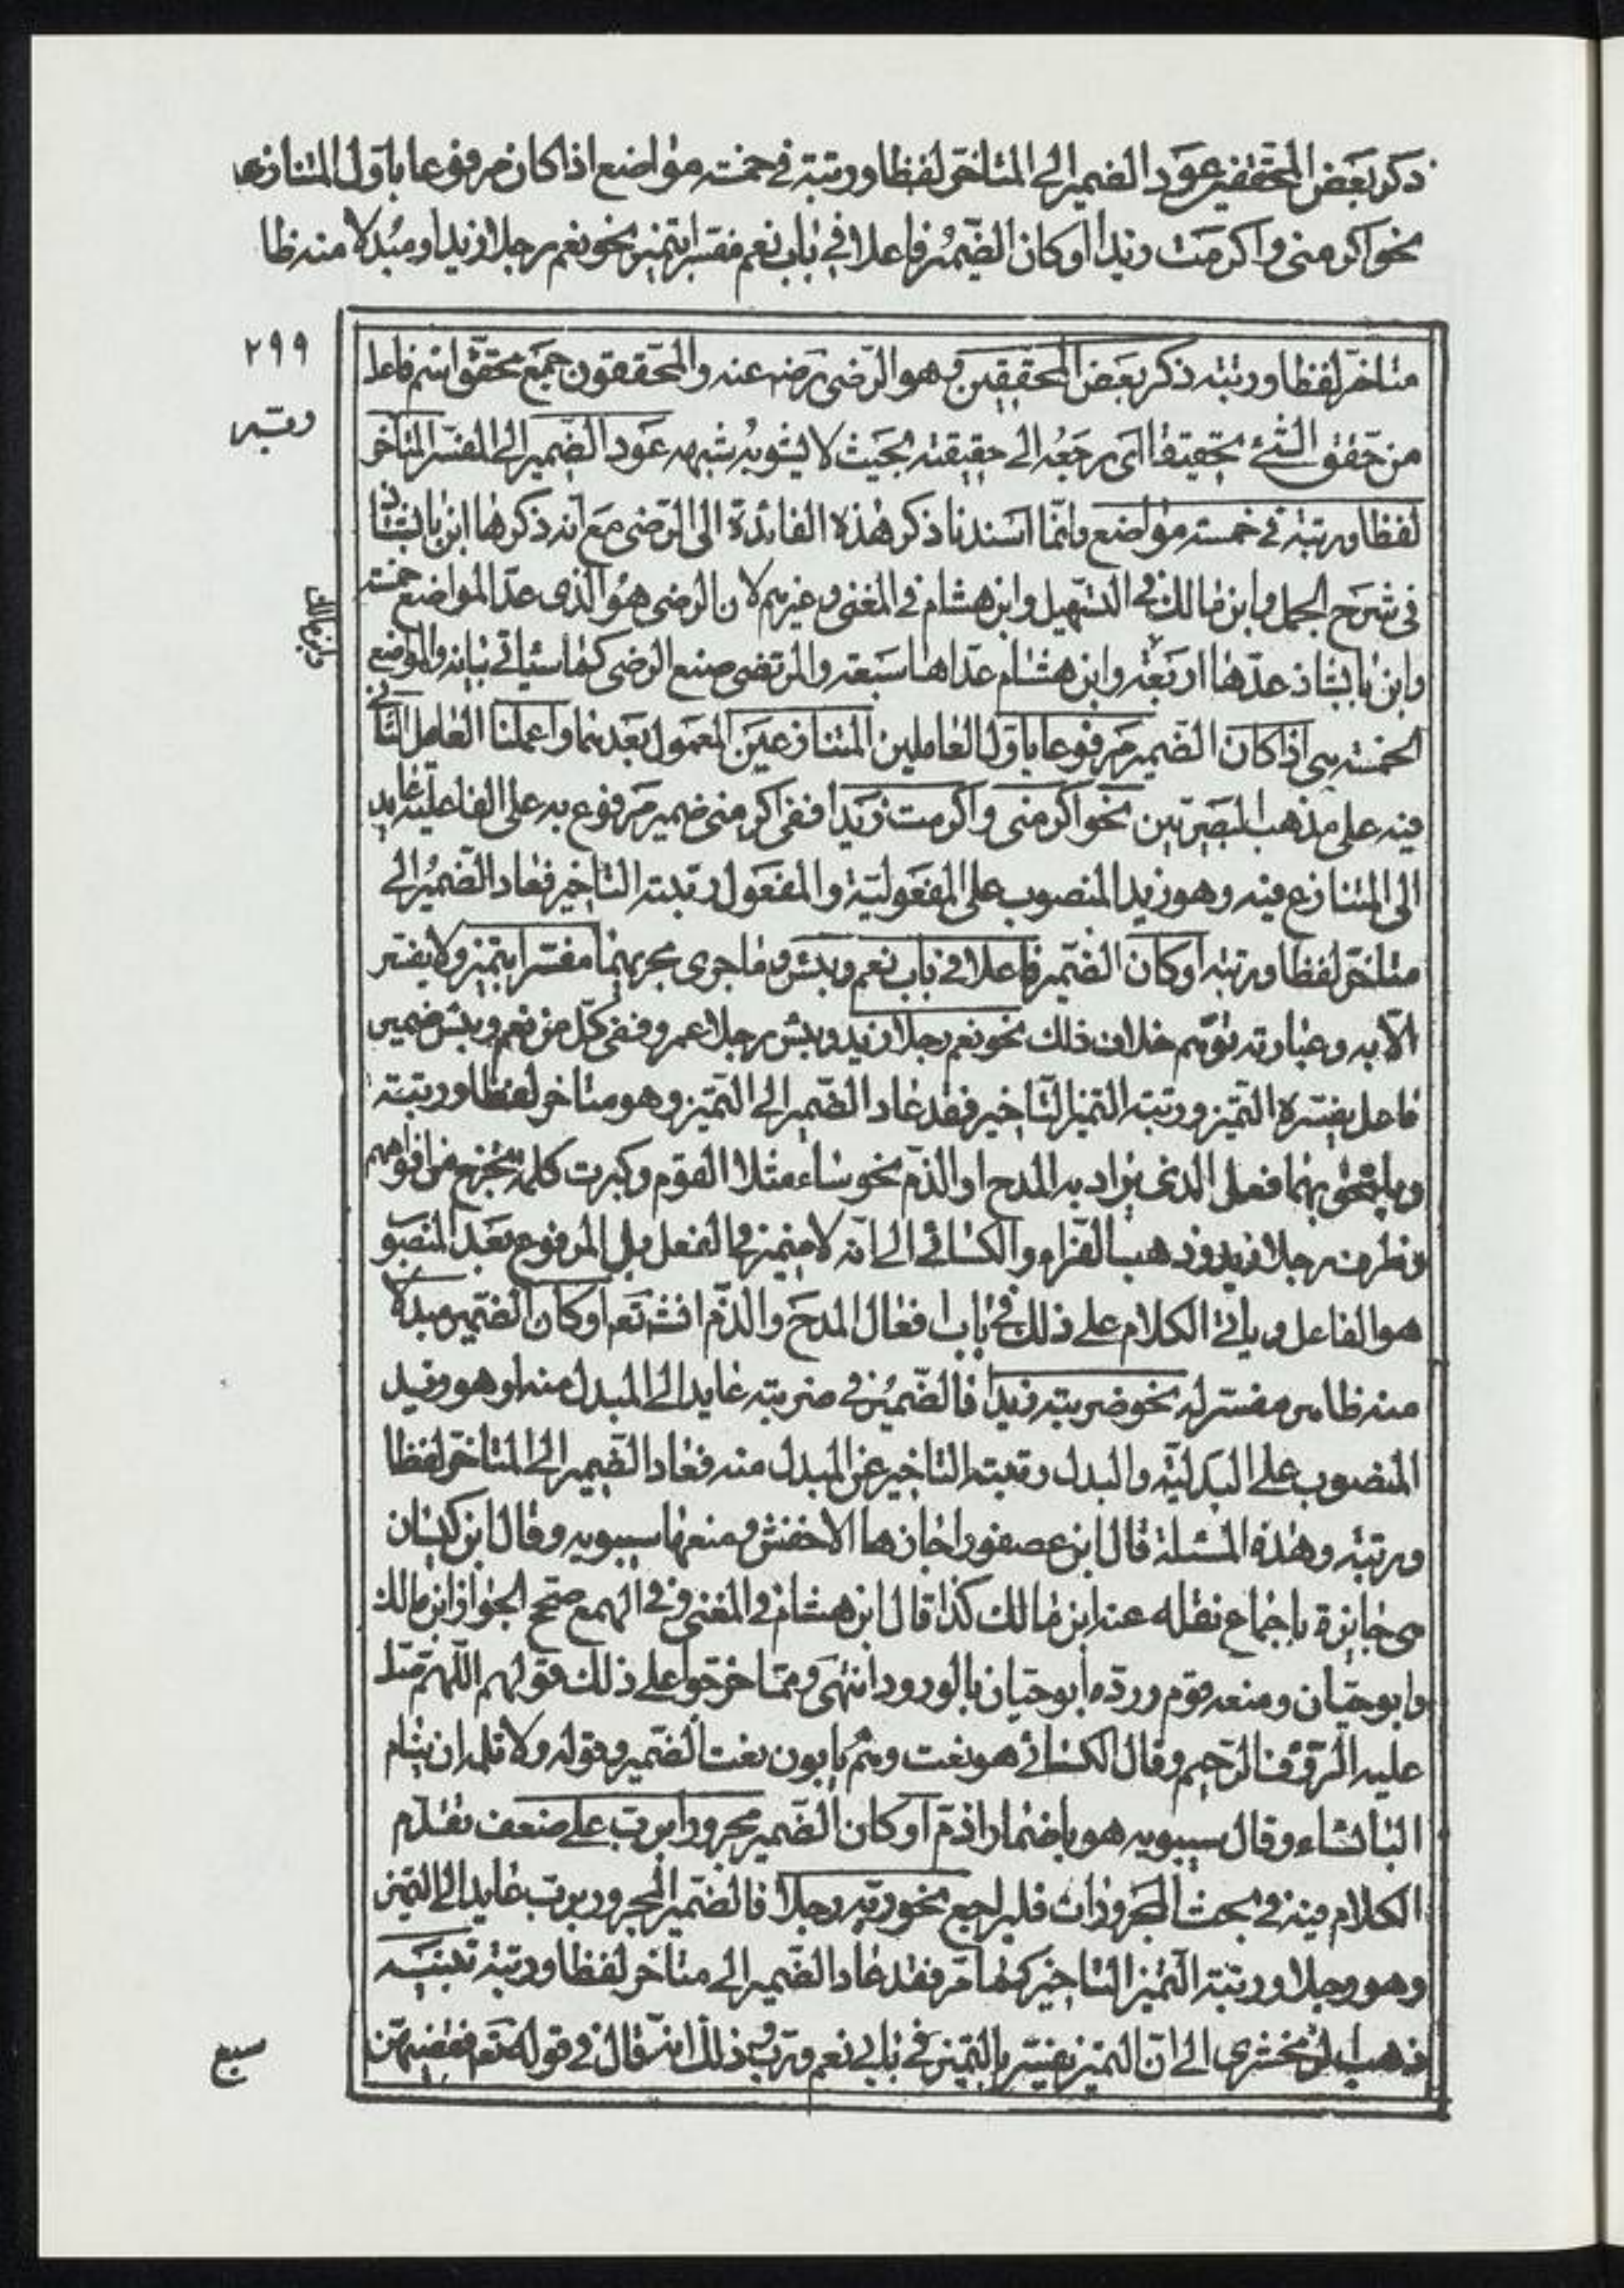 ذكر بعض المحققين عود الضمير الى المتاخر لفظا ورتبة في خمسة مواضع اذا كان مرفوعا باول المتنازعين
نحو اكرمنى واكرمت زيدا او كان الضمير فاعلا في باب نعم مفسرا بتميز نحو نعم رجلا زيد او مبدلا منه ظا
٢٩٩
متاخر لفظا ورتبة ذكر بعض المحققين وهو الرضى رضه عنه والمحققون جمع محقق اسم فاعل
من حقق الشئ تحقيقا اى رجعه الى حقيقته بحيث لا يشوبه شبهه عود الضمير الى المفسر المتاخر
لفظا ورتبة في خمسة مواضع وانما اسندنا ذكر هذه الفائدة الى الرضى مع انه ذكرها ابن بابشاذ
في شرح الجمل وابن مالك في التسهيل وابن هشام في المغنى وغيرهم لان الرضى هو الذى عد المواضع خمسة
وابن بابشاذ عدها اربعة وابن هشام عداها سبعة والمرتضى صنع الرضى كما سياتي بيانه والمواضع
الخمسة هى اذا كان الضمير مرفوعا باول العاملين المتنازعين المعمول بعدهما واعملنا العامل الثانى
فيه على مذهب البصريين نحو اكرمنى واكرمت زيدا ففى اكرمنى ضمير مرفوع به على الفاعلية عايد
الى المتنازع فيه وهو زيد المنصوب على المفعولية والمفعول رتبته التاخير فعاد الضمير الى
متاخر لفظا ورتبة او كان الضمير فاعلا في باب نعم وبئس وما جرى مجريهما مفسرا بتميز ولا يفسر
الا به وعبارته توهم خلاف ذلك نحو نعم رجلا زيد وبئس رجلا عمرو ففى كل من نعم وبئس ضمير
فاعل يفسره التميز ورتبة التميز التاخير فقد عاد الضمير الى التميز وهو متاخر لفظا ورتبة
ويلحق بهما فعل الذى يراد به المدح او الذم نحو ساء مثلا القوم وكبرت كلمة تخرج من افواههم
وظرف رجلا زيد وذهب الفراء والكسائى الى انه لا ضمير في الفعل بل المرفوع بعد المنصوب
هو الفاعل وياتى الكلام على ذلك في باب افعال المدح والذم انشتعم او كان الضمير مبدلا
منه ظاهر مفسر له نحو ضربته زيدا فالضمير في ضربته عايد الى المبدل منه او هو زيد
المنصوب على البدلية والبدل رتبته التاخير عن المبدل منه فعاد الضمير الى المتاخر لفظا
ورتبة وهذه المسئلة قال ابن عصفور اجازها الاخفش ومنعها سيبويه وقال ابن كيسان
هى جايزة باجماع نقله عنه ابن مالك كذا قال ابن هشام في المغنى وفي الهمع صحح الجواز ابن مالك
وابو حيان ومنعه قوم ورده ابو حيان بالورود انتهى ومما خرجوا على ذلك قولهم اللهم صل
عليه الرؤف الرحيم وقال الكسائى هو نعت وهم يابون نعت الضمير وقوله ولا تلمه ان ينام
البائسا وقال سيبويه هو باضمار اذم او كان الضمير مجرورا برب على ضعف تقدم
الكلام فيه في بحث المجرورات فليراجع نحو ربه رجلا فالضمير المجرور برب عايد الى التميز
وهو رجلا ورتبة التميز التاخير كما مر فقد عاد الضمير الى متاخر لفظا ورتبة تنبيه
ذهب الزمخشرى الى ان التميز يفسر بالتميز في بابي نعم ورب وذلك انه قال في قوله تعم فقضيهن
سبع